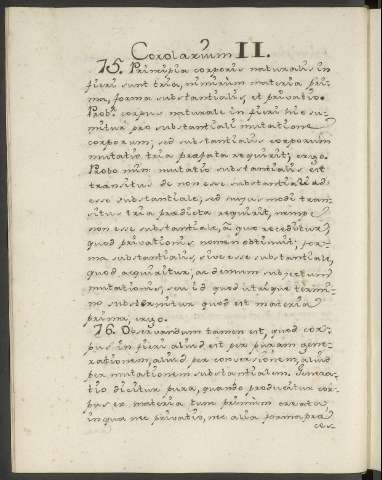 Corolarium II.
75. Principia corporis naturalis in
fieri sunt tria, nimirum materia pri-
ma, forma substantialis, et privatio.
Probr. corpus naturale in fieri hic su-
mitur pro substantiali mutatione
corporum; sed substantialis corporum
mutatio tria præfata requirit; ergo.
Probo min: mutatio substantialis est
transitus de non esse substantiali ad
esse substantiale, sed hujus modi tran-
situs tria prædicta requirit, nempe
non esse substantiale, a quo receditur,
quod privationis nomen obtinuit; for-
ma substantialis, sive esse substantiale,
quod acquiritur, ac demum subjectum
mutationis, seu id quod utrique termi-
no substernitur quod est materia
prima, ergo.
76. Observandum tamen est, quod cor-
pus in fieri aliud est per puram gene-
rationem, aliud per conversionem, aliud
per mutationem substantialem. Genera-
tio dicitur pura, quando producitur cor-
pus ex materia tum primum creata
in qua nec privatio, nec alia forma præ
ces-